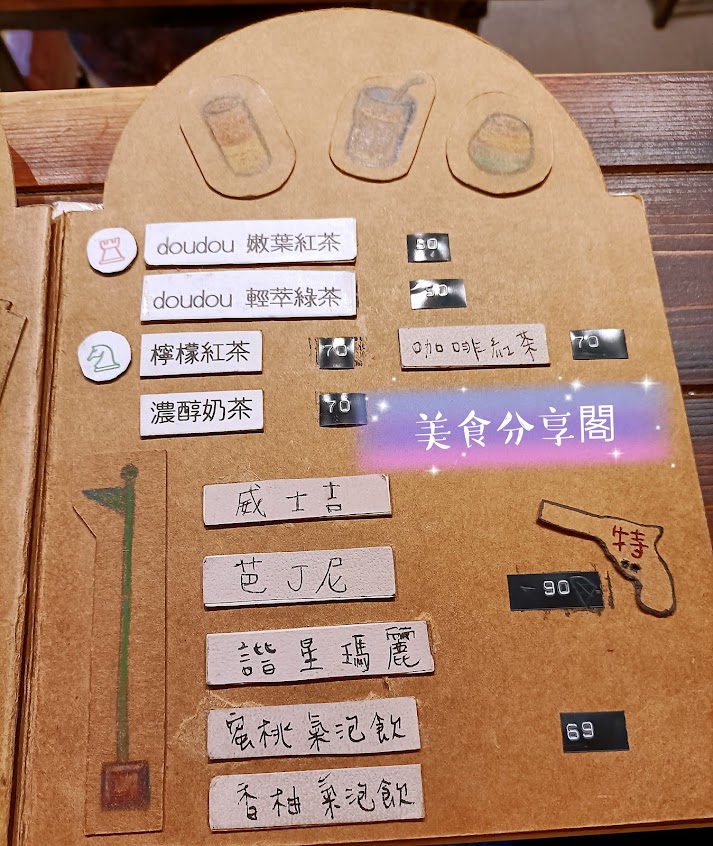 doudou 嫩葉紅茶 50
doudou 輕萃綠茶 50
檸檬紅茶 70 咖啡紅茶 70
濃醇奶茶 70
美食分享閣
威士吉
特
芭丁尼 90
諧星瑪麗
蜜桃氣泡飲 69
香柚氣泡飲